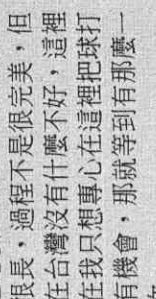 很長，過程不是很完美，但
在台灣沒有什麼不好，這裡
在我只想專心在這裡把球打
有機會，那就等到有那麼一